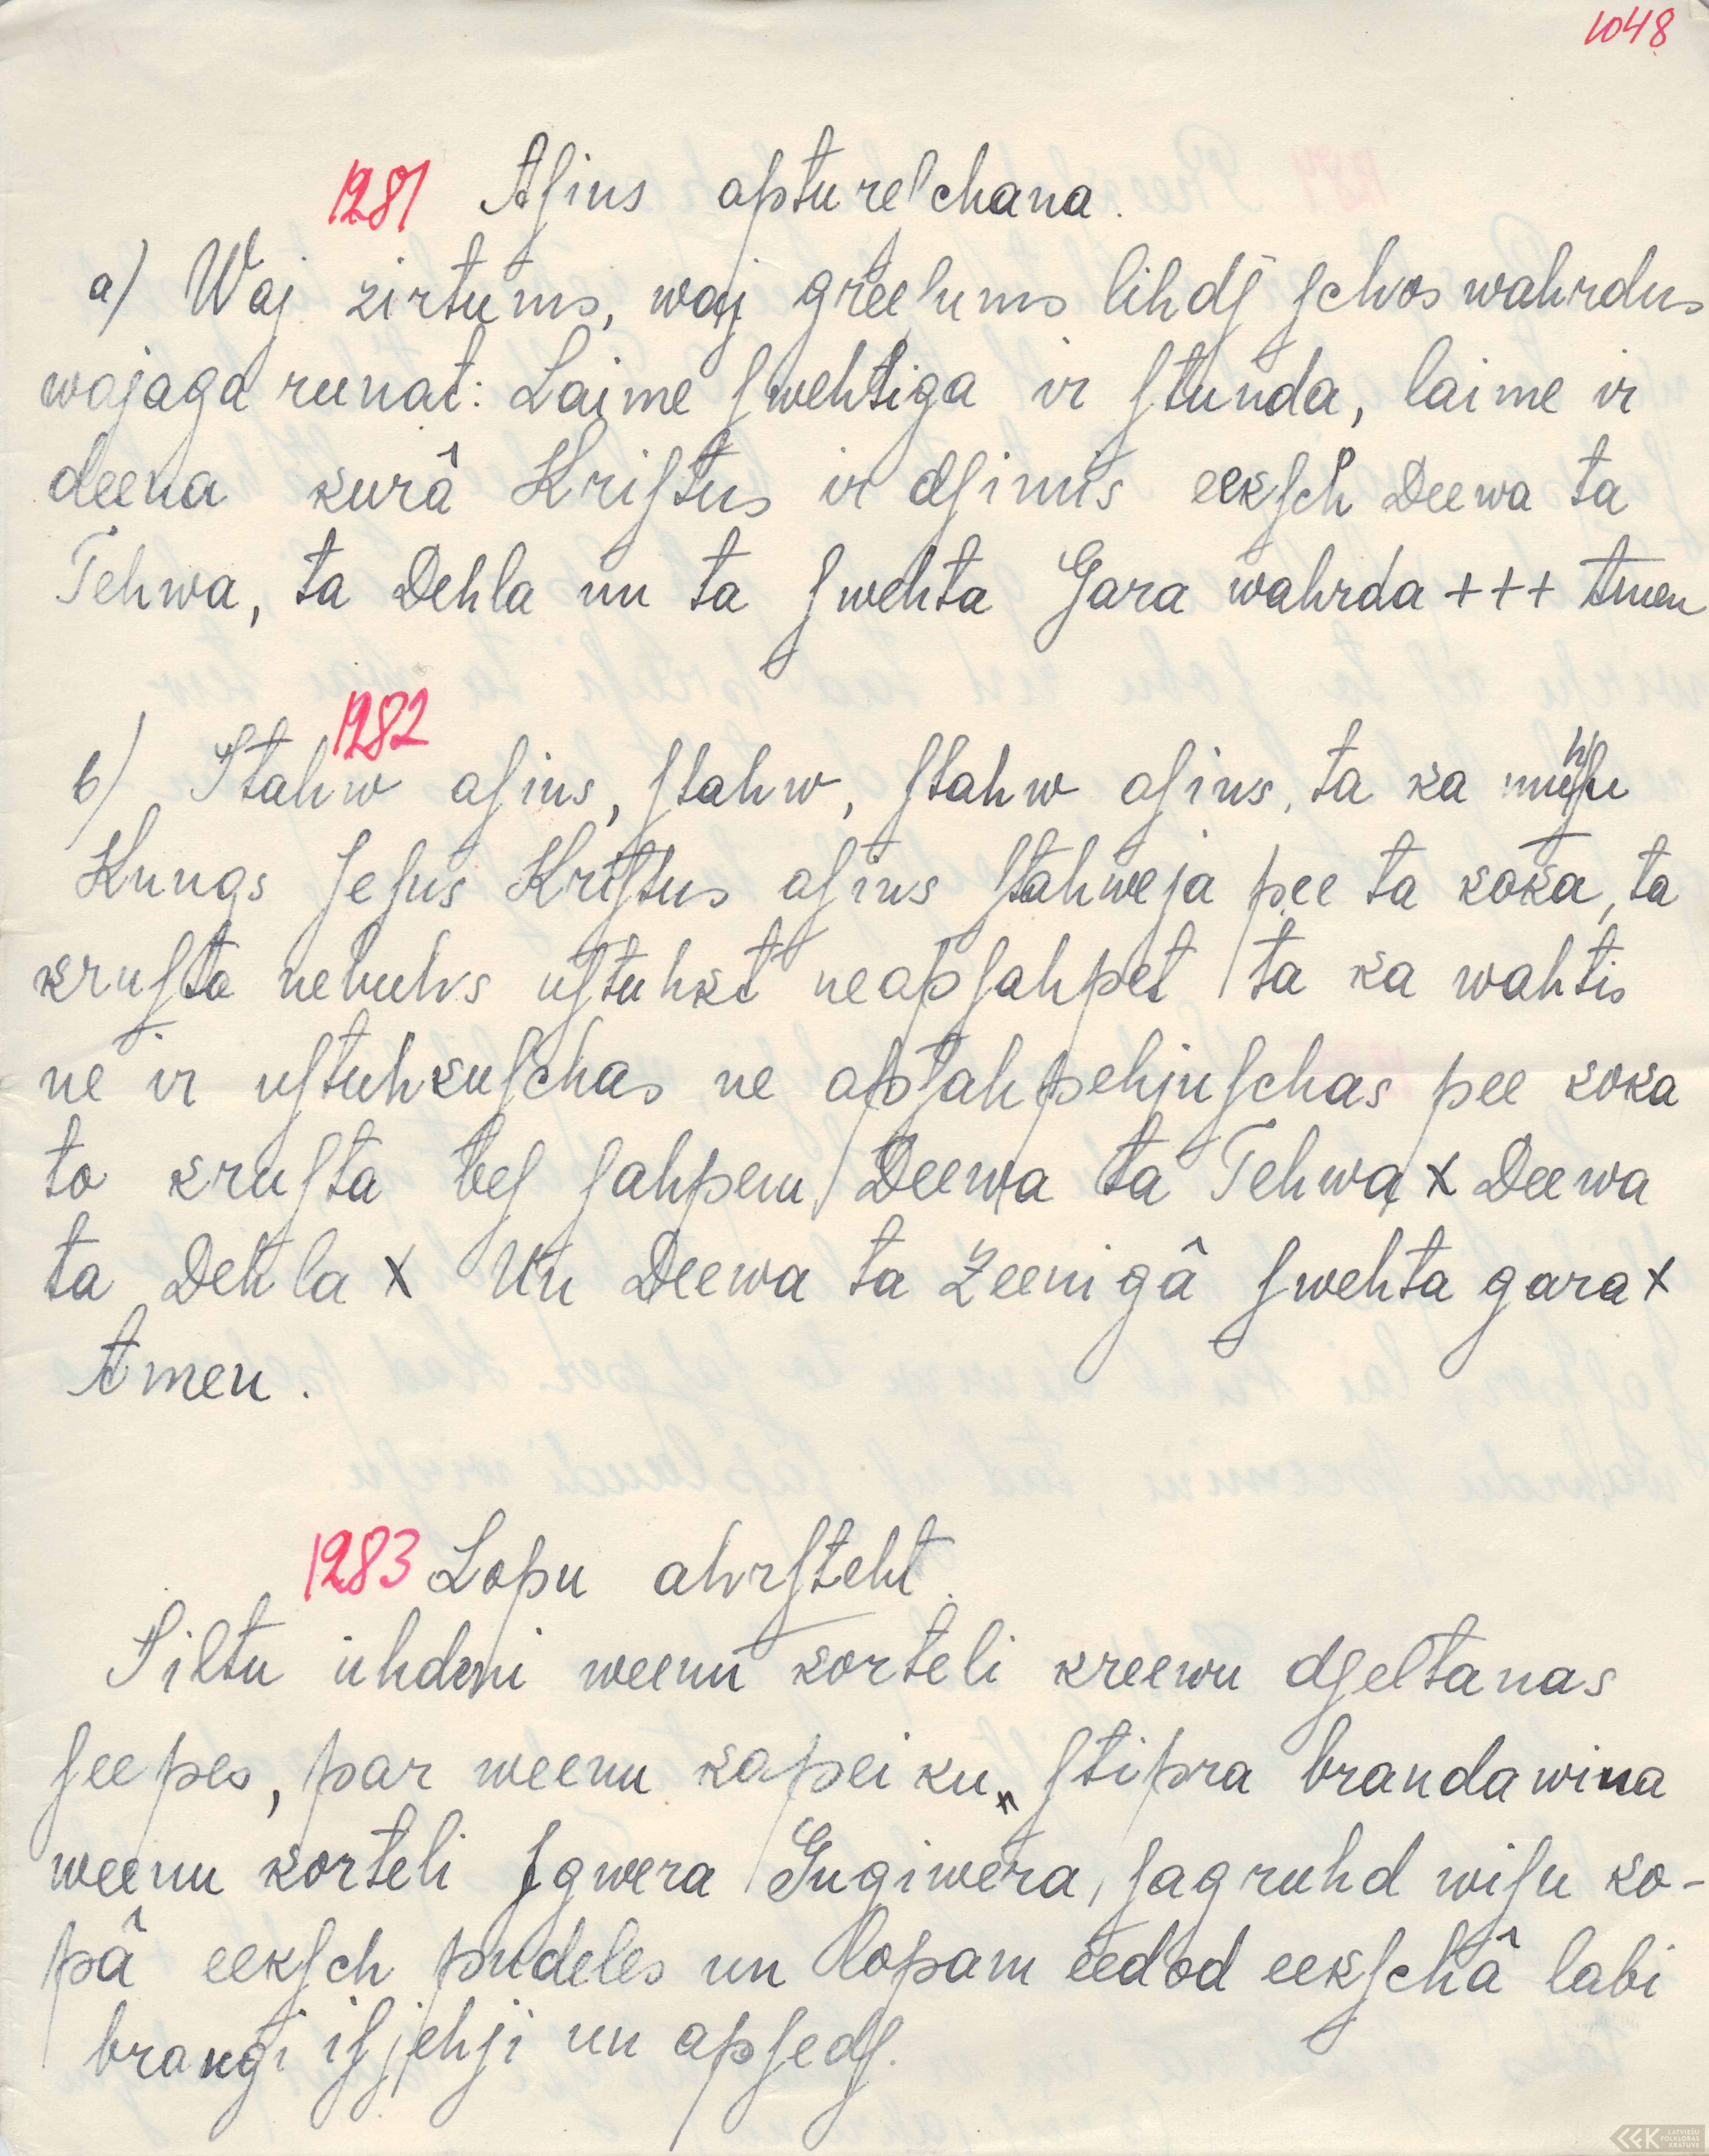 1048
1281 Aſins aptureſchana.
a) Waj zirtums, waj greeſums lihdſ ſchos wahrdus
wajaga runat: Laime ſwehtiga ir ſtunda, laime ir
deena kurâ Kriſtus ir dſimis eekſch Deewa ta
Tehwa, ta Dehla un ta ſwehta Gara wahrda +++ Amen
1282
b) Stahw aſins, ſtahw, ſtahw aſins, ta ka muhſu
Kungs Jeſus Kriſtus aſins ſtahweja pee ta koka, ta
kruſta nebuhs uſtuhkt neapſahpet ta ka wahtis
ne ir uſtuhkuſchas ne apſahpehjuſchas pee koka
to kruſta beſ ſahpem Deewa ta Tehwa x Deewa
ta Dehla x Un Deewa ta Zeenigâ ſwehta gara x
Amen.
1283 Lopu ahrſteht.
Siltu uhdeni weenu korteli kreewu dſeltanas
ſeepes, par weenu kapeiku, ſtipra brandawina
weenu korteli Jgwera Gugiwera, ſagruhd wiſu ko-
pâ eekſch pudeles un lopam eedod eekſchâ labi
brangi iſjehji un apſedſ.
LATVIEŠU FOLKLORAS KRĀTUVE